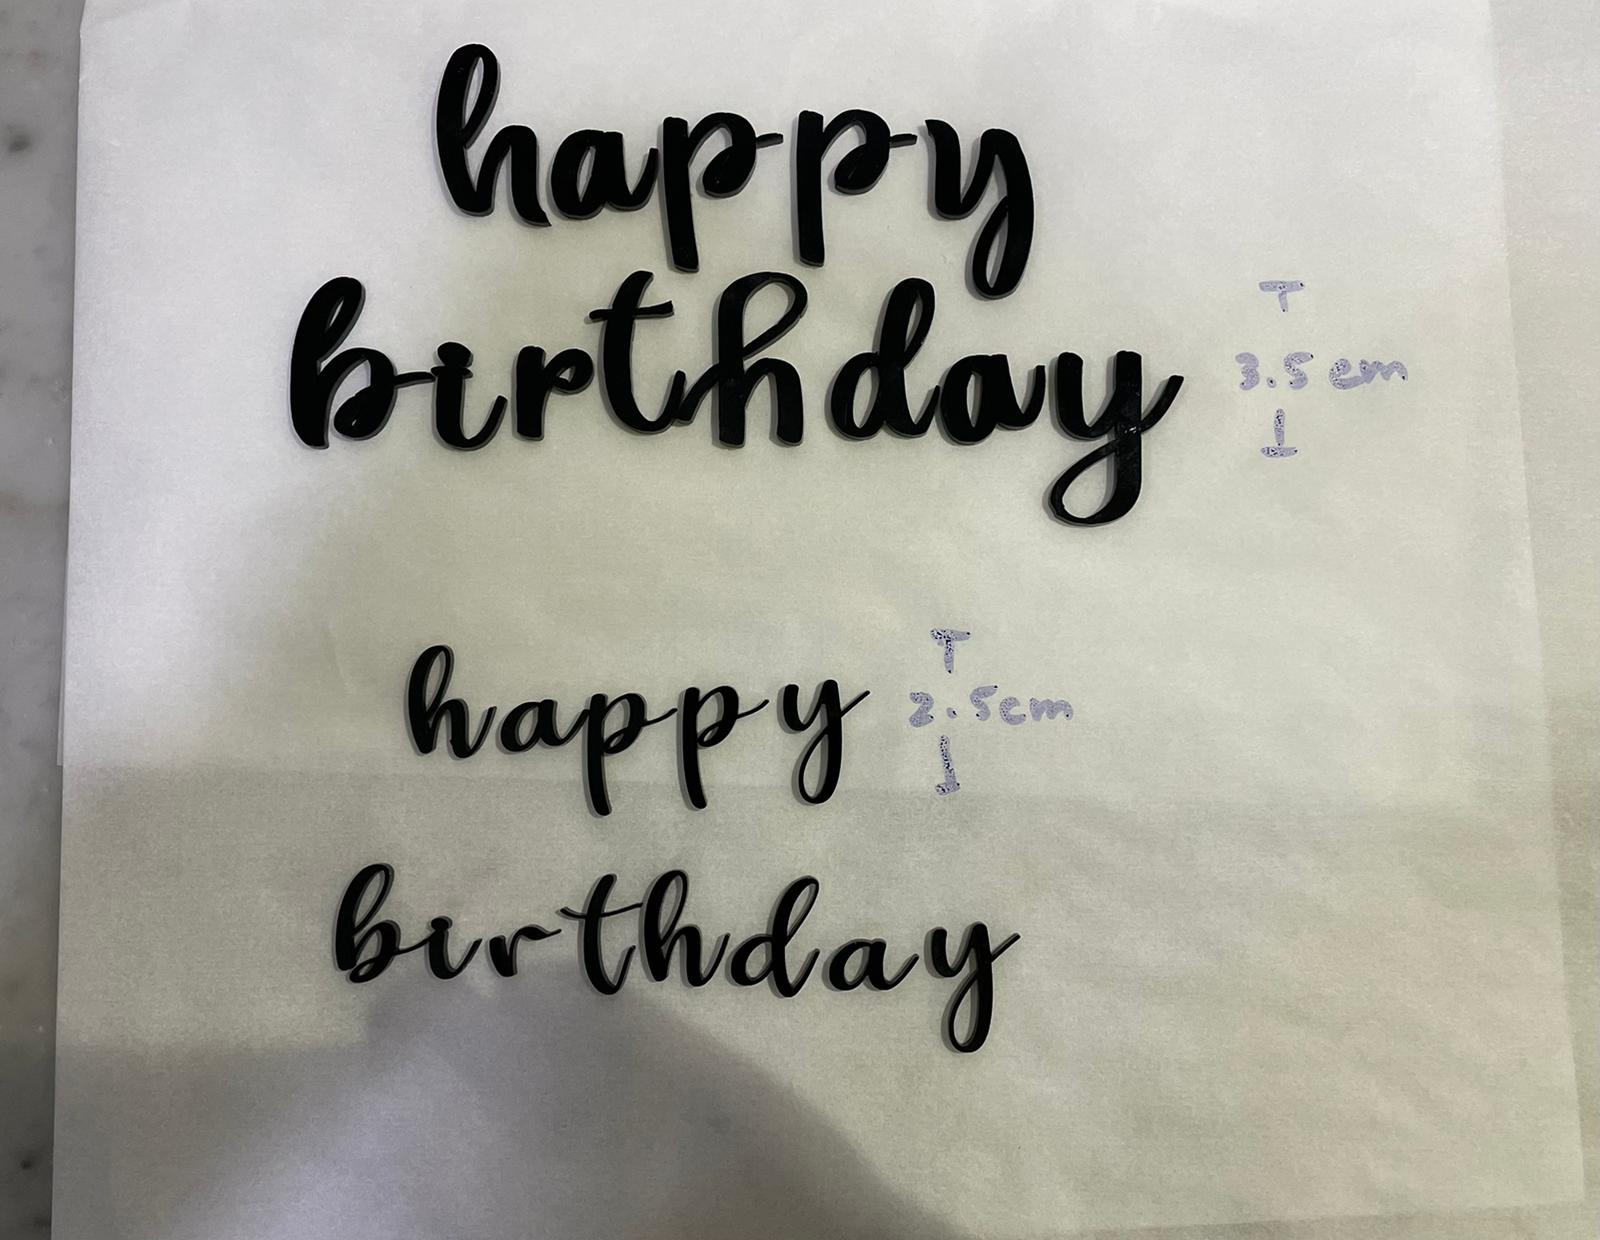 happy
birthday
3.5 cm
happy
2.5cm
birthday